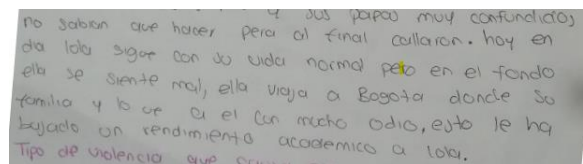 y sus papas muy confundidos
no sabian que hacer pero al final callaron. hoy en
dia lola sigue con su vida normal pero en el fondo
ella se siente mal, ella viaja a Bogota donde su
familia y lo ve a el con mucho odio, esto le ha
bajado un rendimiento academico a lola.
Tipo de violencia que